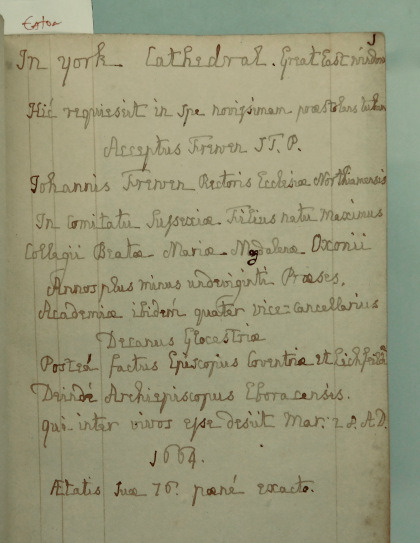 Eston
1
In york Cathedral. Great East window
Hic requiescit in spe novissimam præstolans tubam
Acceptus Frewen ST. P.
Johannis Frewen Rectoris Ecclesiæ Northiamensis
In Comitatu Sussexiæ Filius natu maximus
Collegii Beatæ Mariæ Magdalenæ Oxonii
Annos plus minus undeviginti Præses,
Academiæ ibidem quater vice=cancellarius
Decanus Glocestriæ
Posteá factus Episcopus Coventriæ et Lichfeildiæ
Deindé Archiepiscopus Eboracensis.
qui inter vivos esse desiit Mar: 28. A.D.
1664.
Ætatis suæ 76. pæné exacto.